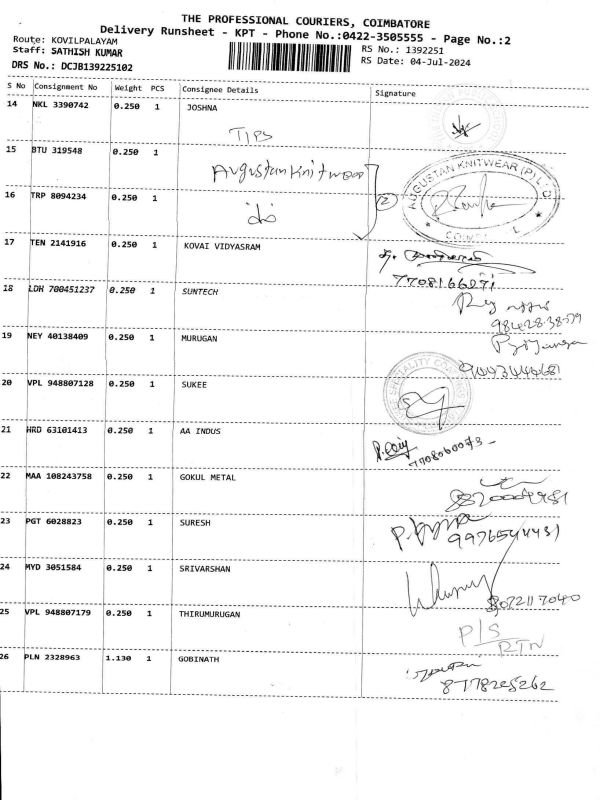 THE PROFESSIONAL COURIERS, COIMBATORE
Delivery Runsheet - KPT - Phone No.:0422-3505555 - Page No.:2
Route: KOVILPALAYAM
Staff: SATHISH KUMAR
RS No.: 1392251
DRS No.: DCJB139225102
RS Date: 04-Jul-2024
S No Consignment No Weight PCS Consignee Details Signature
14 NKL 3390742 0.250 1 JOSHNA
TIPS
15 BTU 319548 0.250 1
Augustan Knitwear
AUGUSTAN KNITWEAR (P) LTD
16 TRP 8094234 0.250 1
do
2
17 TEN 2141916 0.250 1 KOVAI VIDYASRAM
7708166071
18 LDH 700451237 0.250 1 SUNTECH
98428-38579
19 NEY 40138409 0.250 1 MURUGAN
9003446681
20 VPL 948807128 0.250 1 SUKEE
21 HRD 63101413 0.250 1 AA INDUS
7708060073
22 MAA 108243758 0.250 1 GOKUL METAL
23 PGT 6028823 0.250 1 SURESH
9976544431
24 MYD 3051584 0.250 1 SRIVARSHAN
8072117040
25 VPL 948807179 0.250 1 THIRUMURUGAN
P/S
RTN
26 PLN 2328963 1.130 1 GOBINATH
8778225262